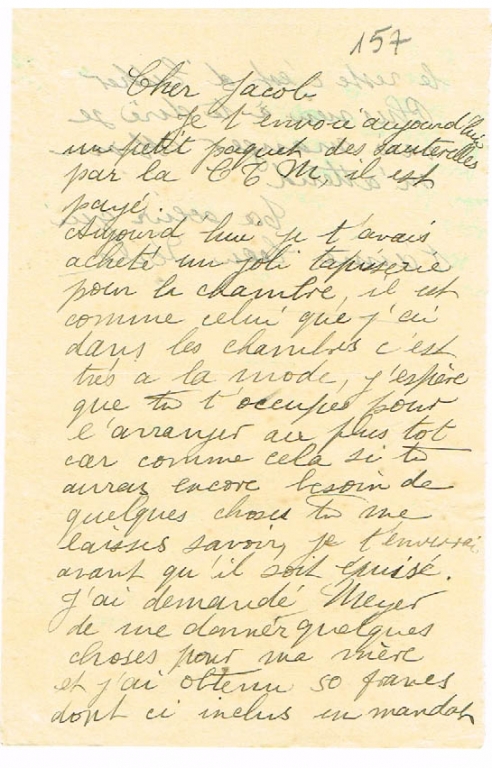 157
Cher Jacob
Je t'envoie aujourd'hui
un petit paquet des sauterelles
par la C T M. il est
payé.
Aujourd hui je t'avais
acheté un joli tapisserie
pour la chambre, il est
comme celui que j'ai
dans les chambres c'est
trés a la mode, j'espère
que tu t'occupes pour
l'arranger au plus tot
car comme cela si tu
auras encore besoin de
quelques choses tu me
laisses savoir, je t'enverai
avant qu'il soit épuisé.
J'ai demandé Meyer
de me donnér quelques
choses pour ma mère
et j'ai obtenu 50 francs
dont ci inclus un mandat